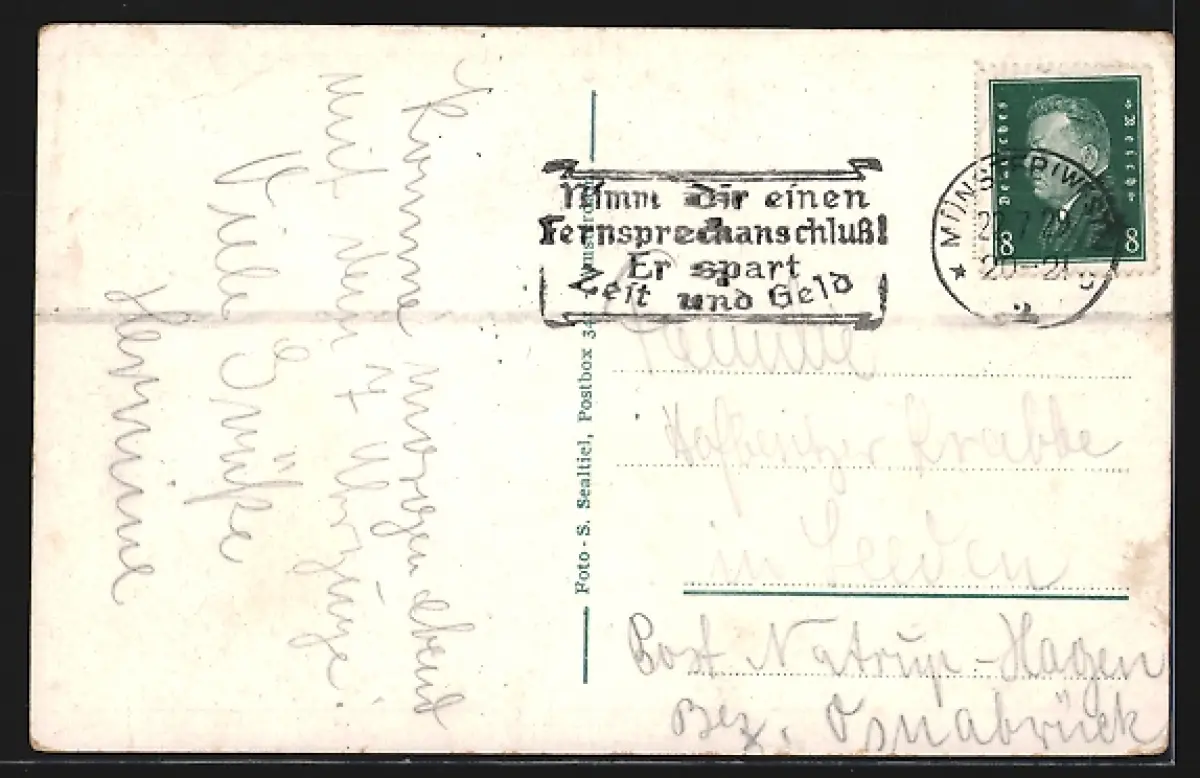 Komme morgen abend
mit dem 7 Uhrzuge.
Viele Grüße
Hermine
Foto - S. Sealtiel, Postbox 34
Nimm Dir einen
Fernsprechanschluß!
Er spart
Zeit und Geld
MÜNSTER (WESTF
20-21
2
Deutsches Reich
8 8
Familie
Hofbesitzer Krabbe
in Leeden
Post Natrup-Hagen
Bez. Osnabrück